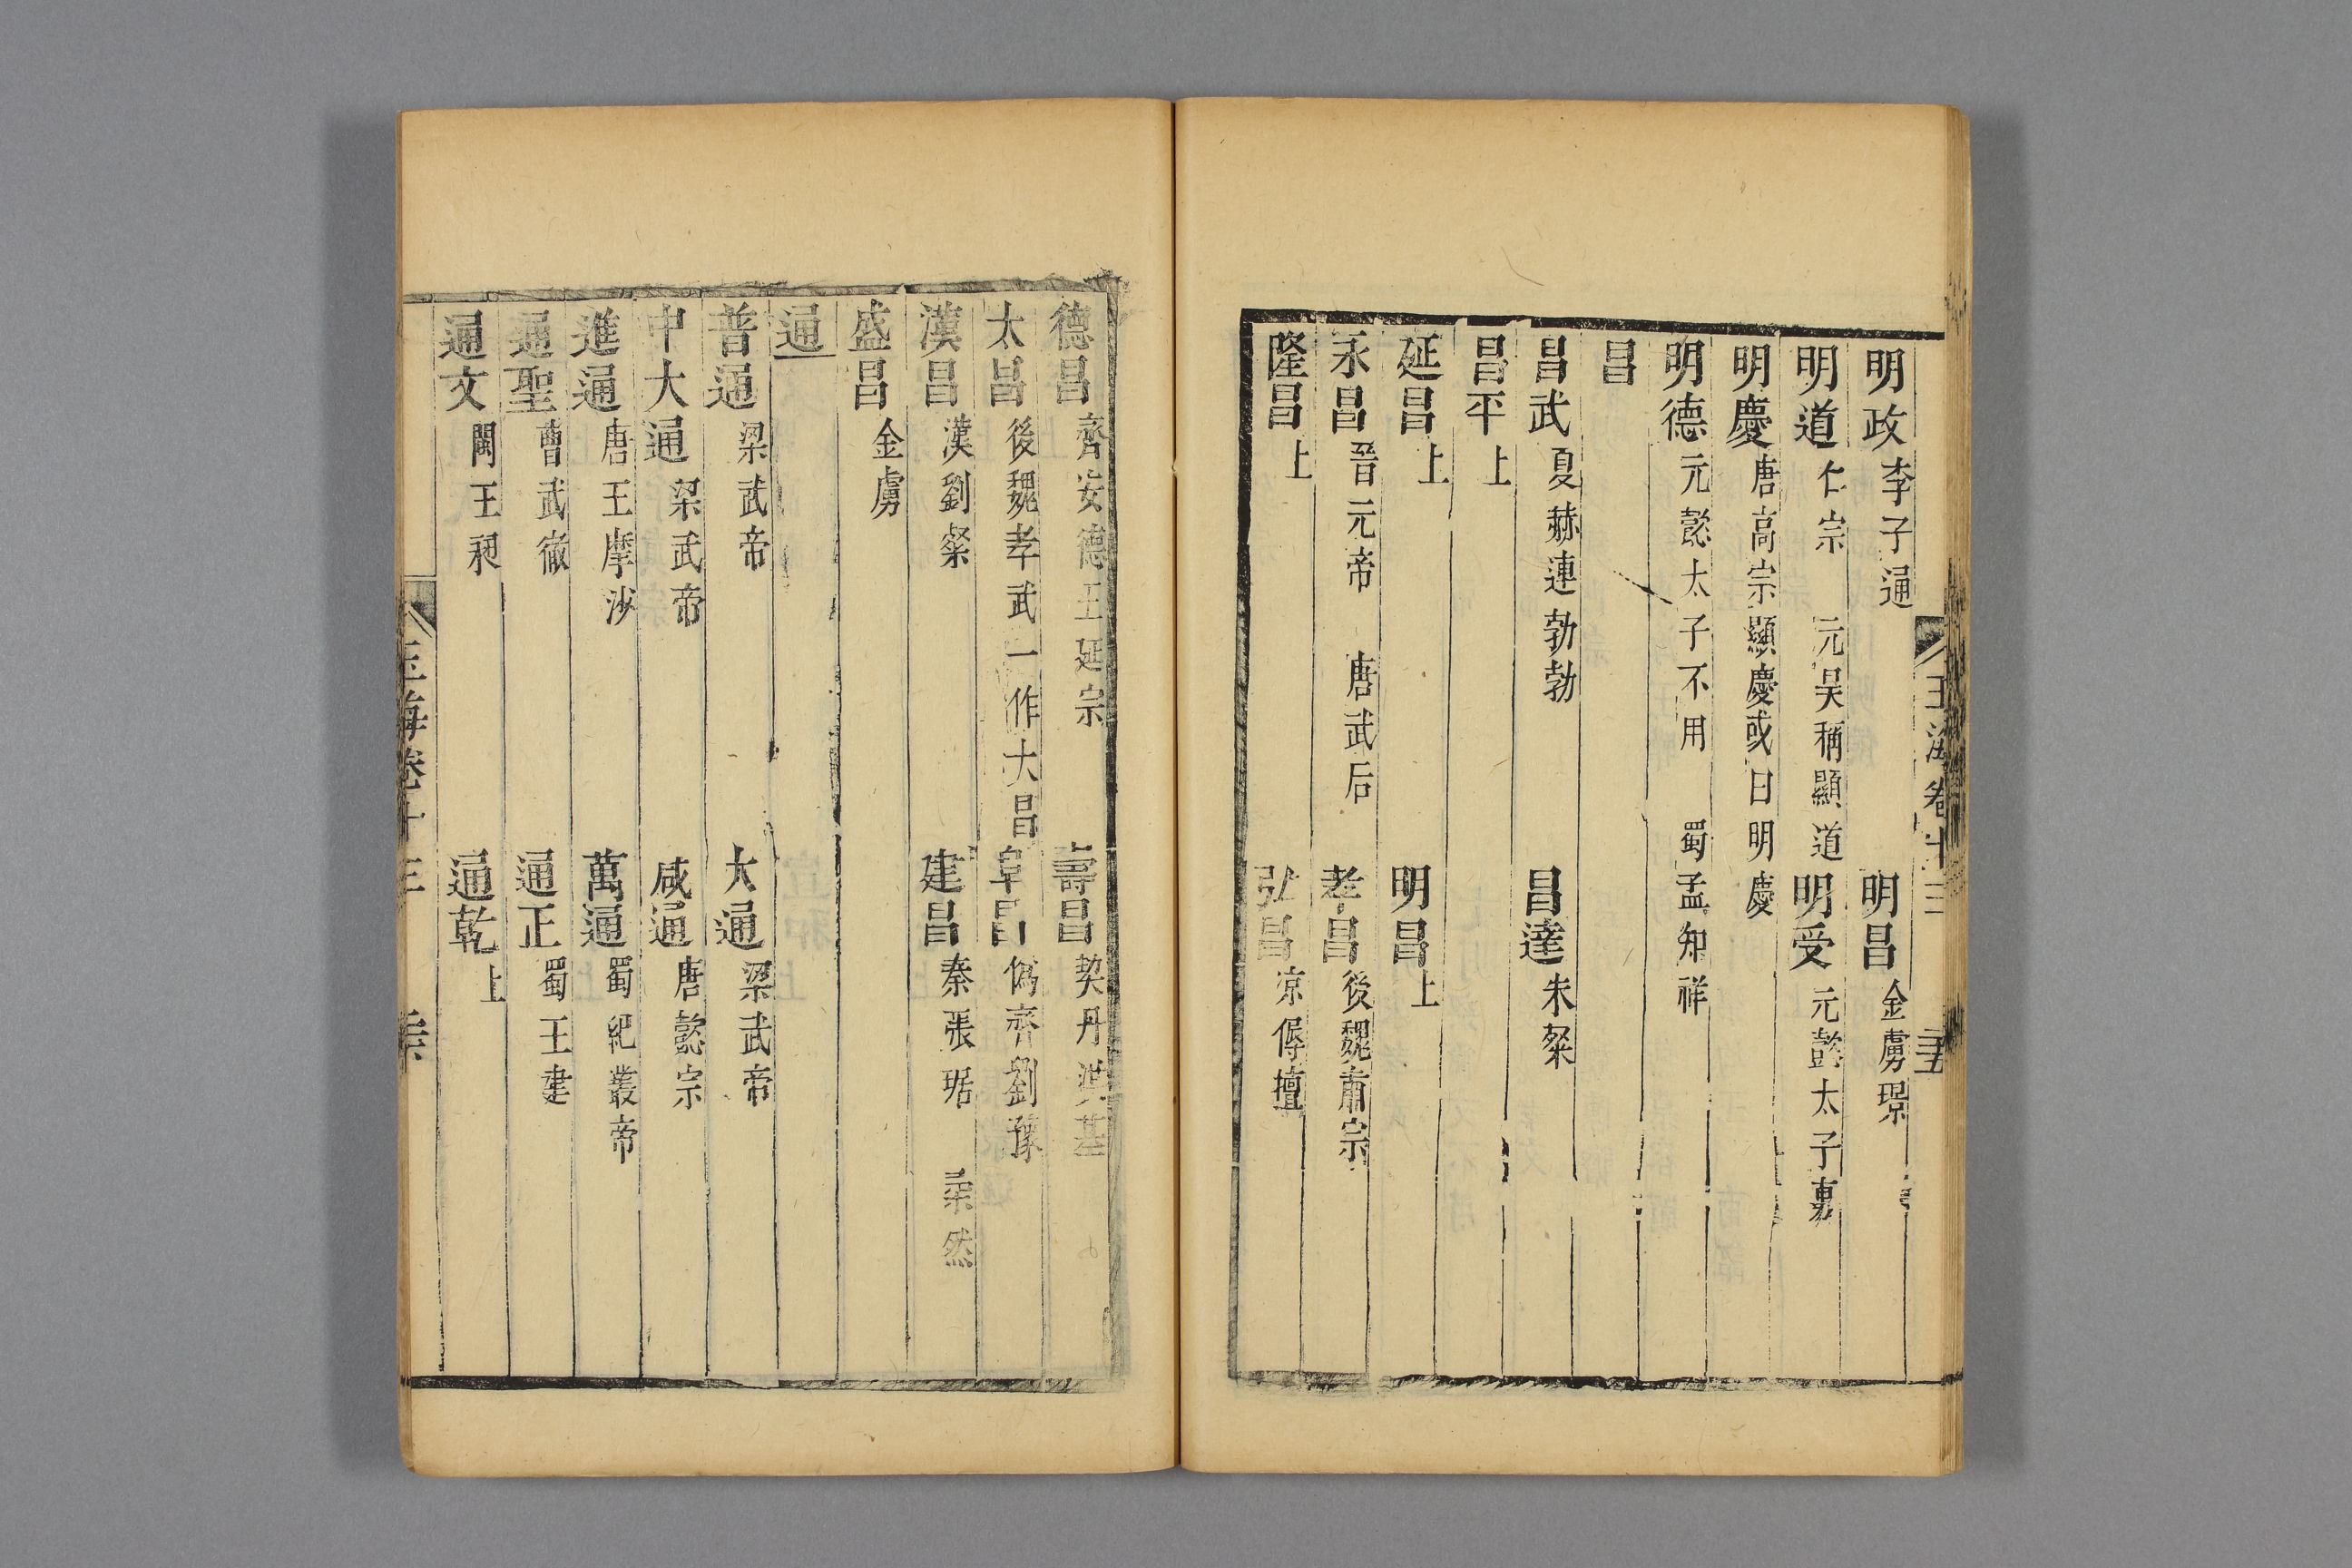 玉海卷十三
明政李子通 明昌金虜璟
明道仁宗 元昊稱顯道 明受元懿太子旉
明慶唐高宗顯慶或曰明慶
明德元懿太子不用 蜀孟知祥
昌
昌武夏赫連勃勃 昌達朱粲
昌平上
延昌上 明昌上
永昌晉元帝 唐武后 孝昌後魏肅宗
隆昌上 弘昌涼傉檀
德昌齊安德王延宗 壽昌契丹洪基
太昌後魏孝武一作大昌 阜昌僞齊劉豫
漢昌漢劉粲 建昌秦張琚 柔然
盛昌金虜
通
普通梁武帝 大通梁武帝
中大通梁武帝 咸通唐懿宗
進通唐王摩沙 萬通蜀紀叢帝
通聖曹武徹 通正蜀王建
通文閩王昶 通乾上
玉海卷十三